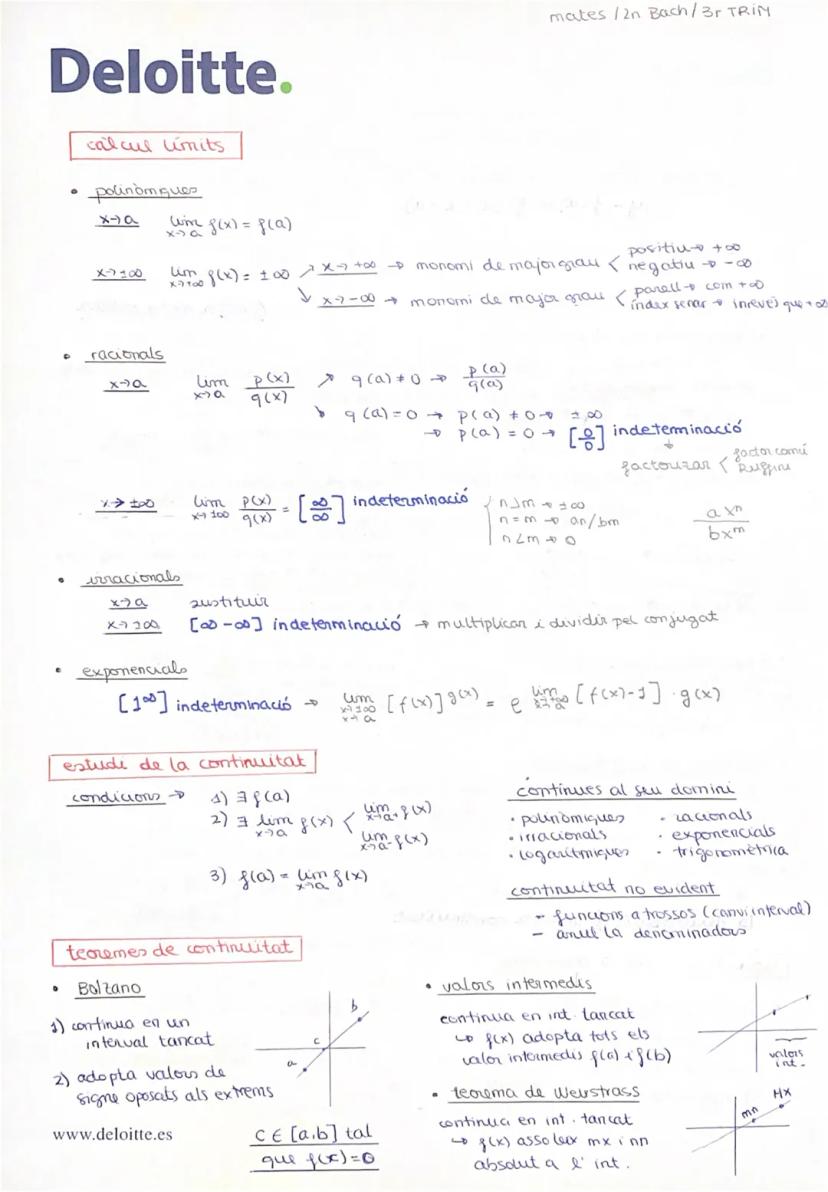 mates / 2n Bach / 3r TRIM
Deloitte.
càlcul límits
• polinòmiques
x→a lim x→a f(x) = f(a)
x→±∞ lim x→±∞ f(x) = ±∞
↗ x→+∞ → monomi de major grau < positiu → +∞
negatiu → -∞
↘ x→-∞ → monomi de major grau < parell → com +∞
índex senar → inrevés que +∞
• racionals
x→a lim x→a p(x)/q(x) ↗ q(a) ≠ 0 → p(a)/q(a)
↘ q(a) = 0 → p(a) ≠ 0 → ±∞
→ p(a) = 0 → [0/0] indeterminació
↓
factoritzar < factor comú
Ruffini
x→±∞ lim x→±∞ p(x)/q(x) = [∞/∞] indeterminació
n>m → ±∞
n=m → an/bm
n<m → 0
axⁿ/bxᵐ
• irracionals
x→a sustituir
x→±∞ [∞-∞] indeterminació → multiplicar i dividir pel conjugat
• exponencials
[1^∞] indeterminació → lim x→±∞ x→a [f(x)]^g(x) = e lim x→±∞ x→a [f(x)-1] · g(x)
estudi de la continuitat
condicions → 1) ∃ f(a)
2) ∃ lim x→a f(x) < lim x→a⁺ f(x)
lim x→a⁻ f(x)
3) f(a) = lim x→a f(x)
contínues al seu domini
• polinòmiques • racionals
• irracionals • exponencials
• logarítmiques • trigonomètrica
continuitat no evident
- funcions a trossos (canvi interval)
- anul·la denominadors
teoremes de continuitat
• Bolzano
1) contínua en un
interval tancat
2) adopta valors de
signe oposats als extrems
a
c
b
c ∈ [a,b] tal
que f(x)=0
• valors intermedis
contínua en int. tancat
↳ f(x) adopta tots els
valor intermedis f(a) i f(b)
valors
int.
• teorema de Weirstrass
contínua en int. tancat
↳ f(x) assoleix mx i mn
absolut a l'int.
mn
MX
www.deloitte.es